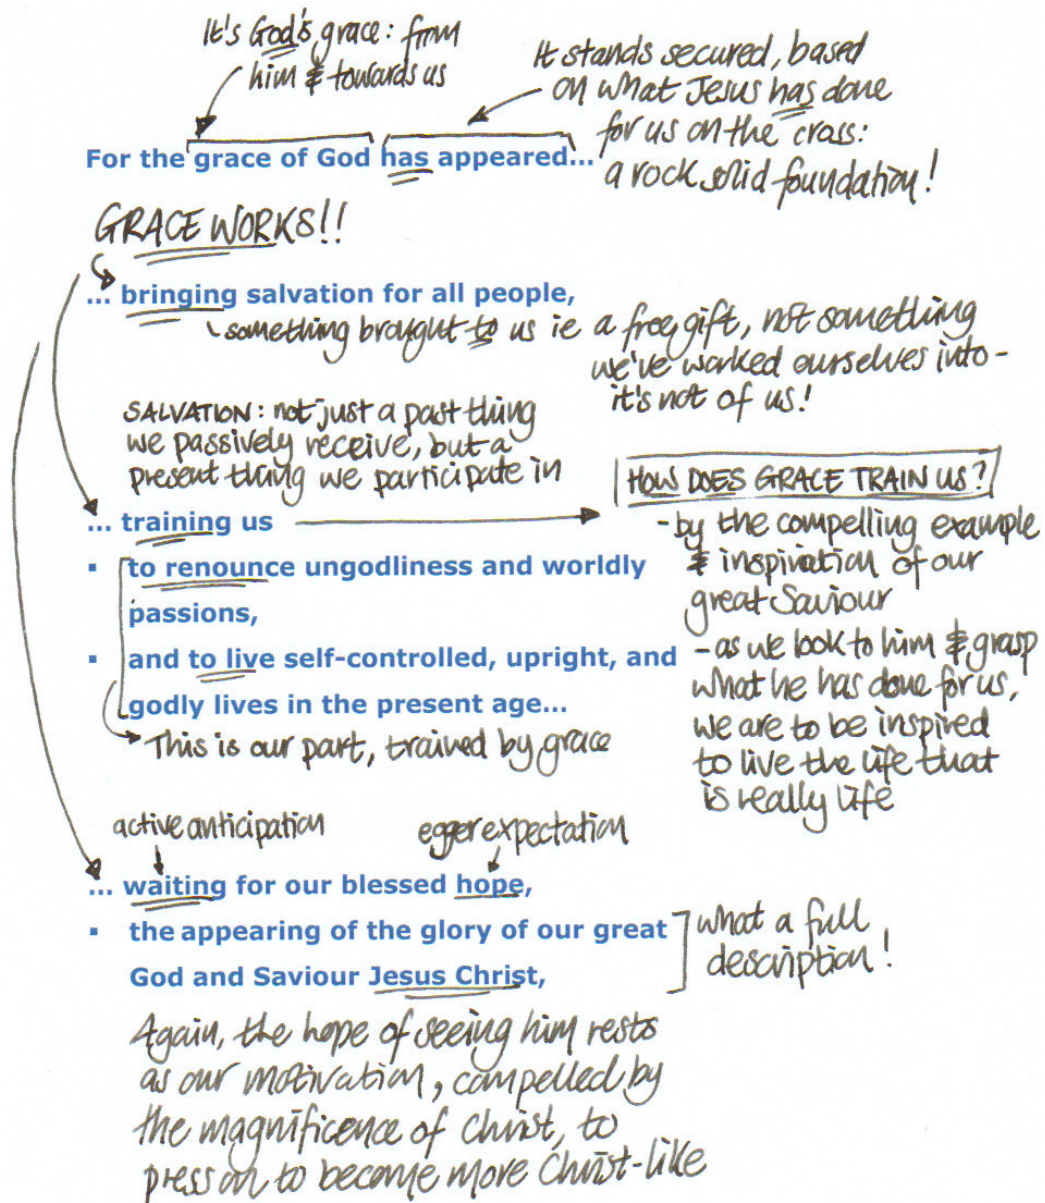 It's God's grace: from
him & towards us
It stands secured, based
on what Jesus has done
for us on the cross:
a rock solid foundation!
For the grace of God has appeared...
GRACE WORKS!!
... bringing salvation for all people,
something brought to us ie a free gift, not something
we've worked ourselves into -
it's not of us!
SALVATION: not just a past thing
we passively receive, but a
present thing we participate in
... training us
HOW DOES GRACE TRAIN US?
- by the compelling example
& inspiration of our
great Saviour
- as we look to him & grasp
what he has done for us,
we are to be inspired
to live the life that
is really life
▪ to renounce ungodliness and worldly
passions,
▪ and to live self-controlled, upright, and
godly lives in the present age...
This is our part, trained by grace
active anticipation
egger expectation
... waiting for our blessed hope,
▪ the appearing of the glory of our great
God and Saviour Jesus Christ,
what a full
description!
Again, the hope of seeing him rests
as our motivation, compelled by
the magnificence of Christ, to
press on to become more Christ-like